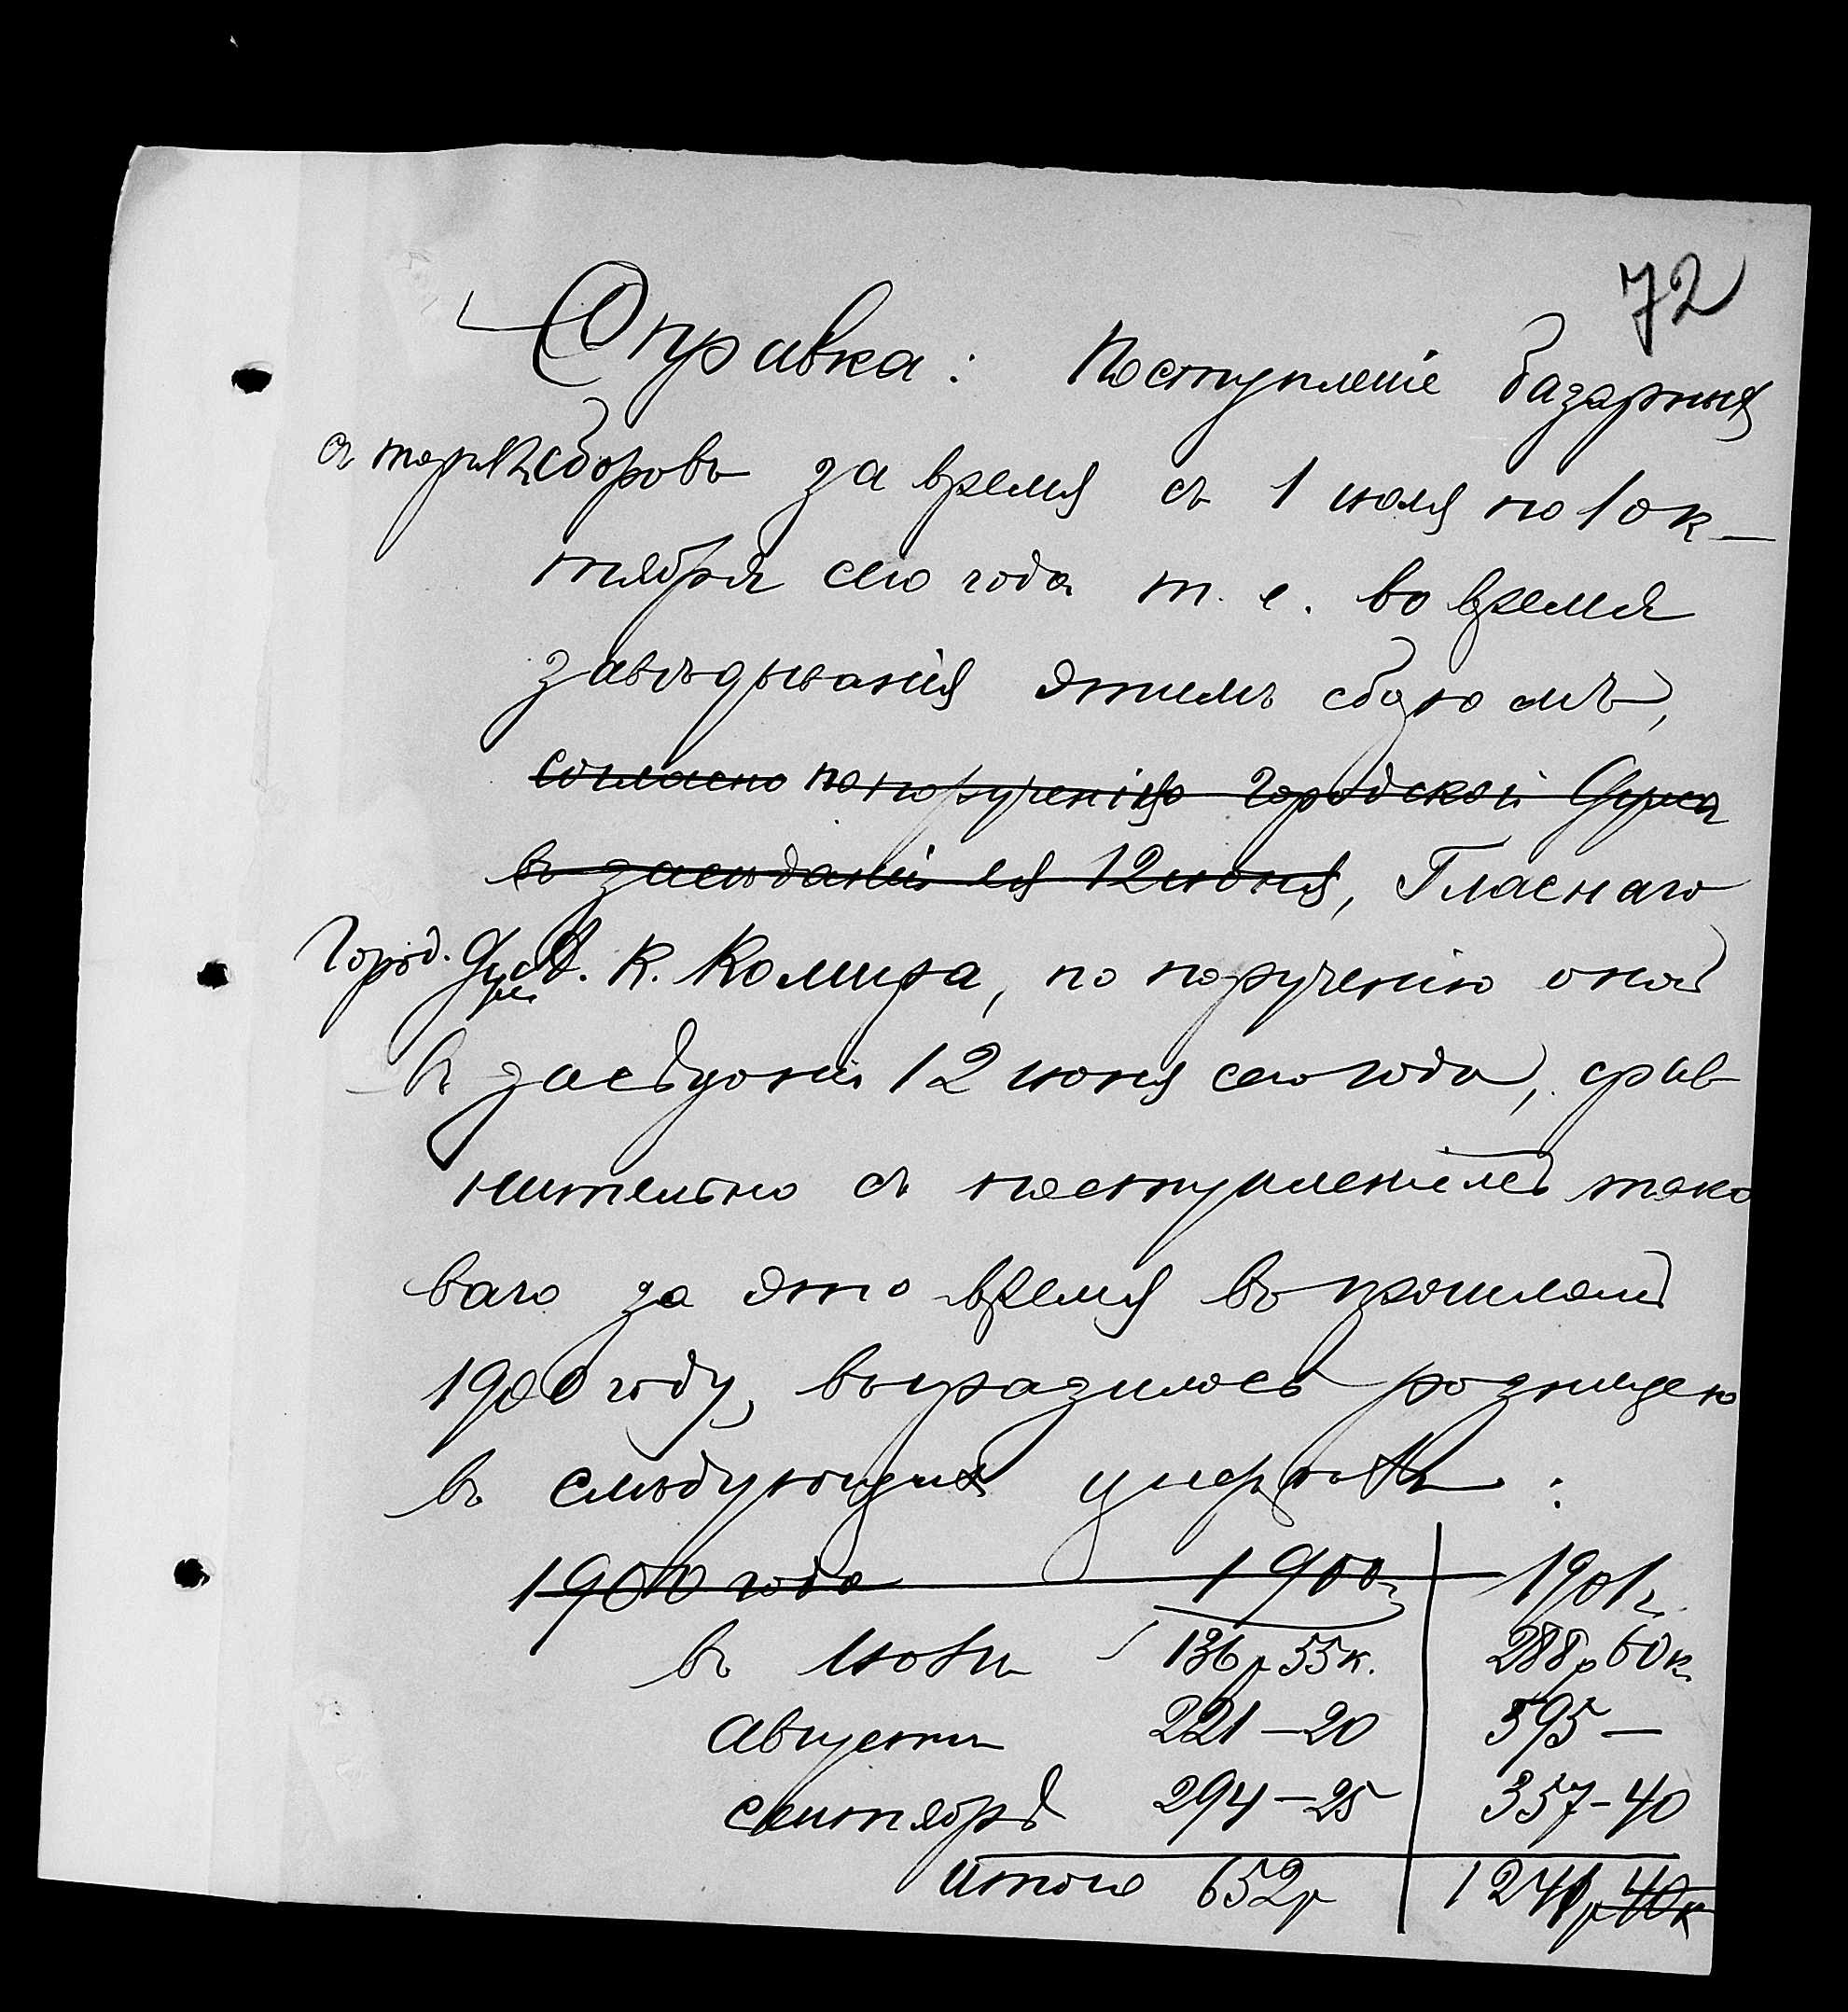 72
Справка: Поступленіе базарныхъ
сборовъ за время съ 1 іюля по 1 ок-
тября сего года т. е. во время
завѣдыванія этимъ сборомъ,
согласно по порученію Городской Думы
въ засѣданіи ея 12 іюня, Гласнаго
Город. Думы К. Комира, по порученію оной
въ засѣданіи 12 іюня сего года, срав
нительно съ поступленіемъ тако
ваго за это время въ прошломъ
1900 году, выразилось разницею
въ слѣдующихъ цифрахъ:
1900 года 1900 г. 1901 г.
въ Іюлѣ 136 р 55 к. 288 р 60 к.
Августѣ 221 — 20 595 —
сентябрѣ 294 — 25 357 — 40
Итого 652 р 1241 р 40 к